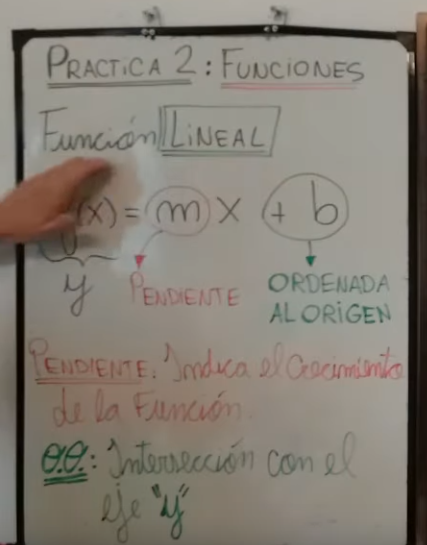 PRACTICA 2: FUNCIONES
Función LINEAL
(x) = m x + b
y PENDIENTE ORDENADA
AL ORIGEN
PENDIENTE: Indica el Crecimiento
de la Función.
O.O.: Intersección con el
eje "y"